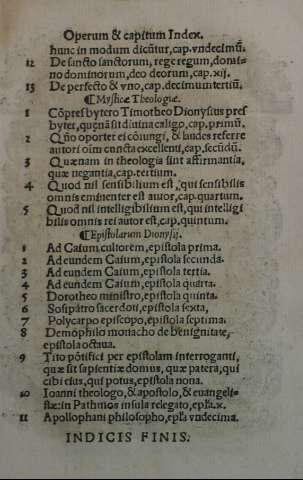 Operum & capitum Index.
hunc in modum dicũtur, cap. vndecimũ.
12 De sancto sanctorum, rege regum, domi-
no dominorum, deo deorum, cap. xij.
13 De perfecto & vno, cap. decimumtertiũ.
¶Mysticæ Theologiæ.
1 Cõpresbytero Timotheo Dionysius pres
byter, quęnã sit diuina caligo, cap. primũ.
2 Quõ oportet & cõiungi, & laudes referre
autori oĩm cuncta excellenti, cap. secũdũ.
3 Quænam in theologia sint affirmantia,
quæ negantia, cap. tertium.
4 Quod nil sensibilium est, qui sensibilis
omnis eminenter est autor, cap. quartum.
5 Quod nil intelligibilium est, qui intelligi
bilis omnis rei autor est, cap. quintum.
¶Epistolarum Dionysij.
1 Ad Caium cultorem, epistola prima.
2 Ad eundem Caium, epistola secunda.
3 Ad eundem Caium, epistola tertia.
4 Ad eundem Caium, epistola quarta.
5 Dorotheo ministro, epistola quinta.
6 Sosipatro sacerdoti, epistola sexta,
7 Polycarpo episcopo, epistola septima.
8 Demophilo monacho de benignitate,
epistola octaua.
9 Tito põtifici per epistolam interroganti,
quæ sit sapientiæ domus, quæ patera, qui
cibi eius, qui potus, epistola nona.
10 Ioanni theologo, & apostolo, & euangeli-
stæ: in Pathmos insula relegato, epľa. x.
11 Apollophani philosopho, epľa vndecima.
INDICIS FINIS.